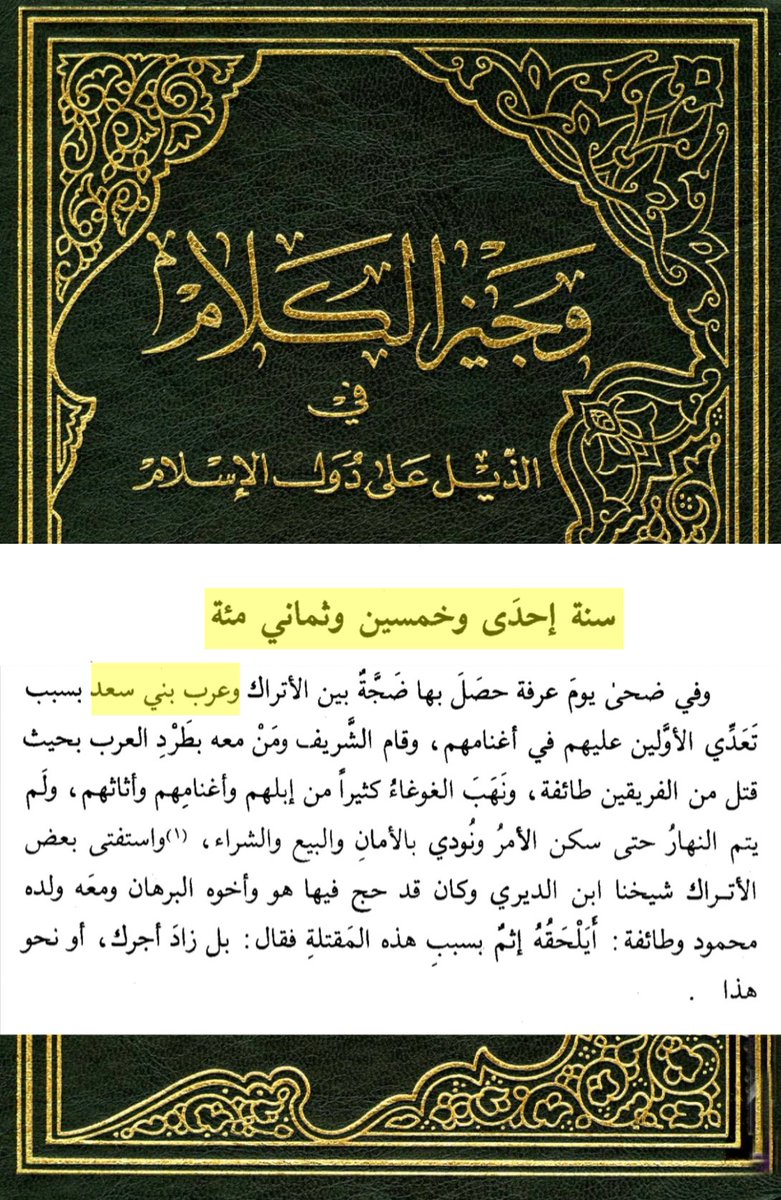 وَجيز الكَلام
في
الذّيل عَلى دُوَل الإسْلام
سنة إحدَى وخمسين وثماني مئة
وفي ضحى يومَ عرفة حصَلَ بها ضَجَّةٌ بين الأتراك وعرب بني سعد بسبب
تَعَدِّي الأوَّلين عليهم في أغنامهم، وقام الشَّريف ومَنْ معه بطَرْدِ العرب بحيث
قتل من الفريقين طائفة، ونَهَبَ الغوغاءُ كثيراً من إبلهم وأغنامِهم وأثاثهم، ولَم
يتم النهارُ حتى سكن الأمرُ ونُودي بالأمانِ والبيع والشراء، (١)واستفتى بعض
الأتراك شيخنا ابن الديري وكان قد حج فيها هو وأخوه البرهان ومعَه ولده
محمود وطائفة: أَيَلْحَقُهُ إثمٌ بسببِ هذه المَقتلةِ فقال: بل زادَ أجرك، أو نحو
هذا .